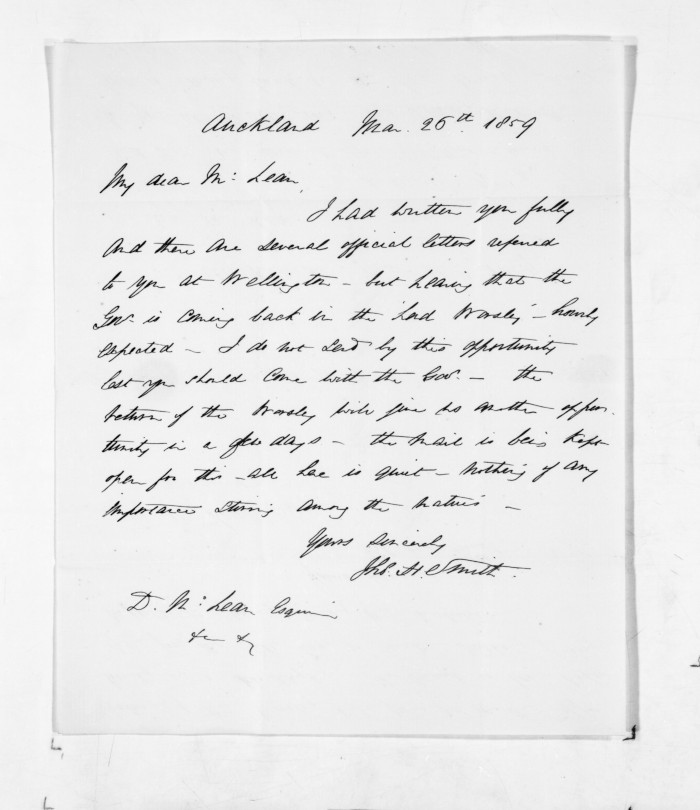 Auckland Mar. 26th. 1859
My dear Mc: Lean,
I had written you fully
and there are several official letters referred
to you at Wellington - but hearing that the
Govr. is coming back in the 'Lord Worsley' - hourly
expected - I do not send by this opportunity
lest you should come with the Govr. - the
return of the Worsley will give us another oppor-
tunity in a few days - the mail is being kept
open for this - all here is quiet - nothing of any
importance stirring among the natives -
Yours sincerely
Jno. H. Smith.
D. Mc: Lean Esquire
&c &c